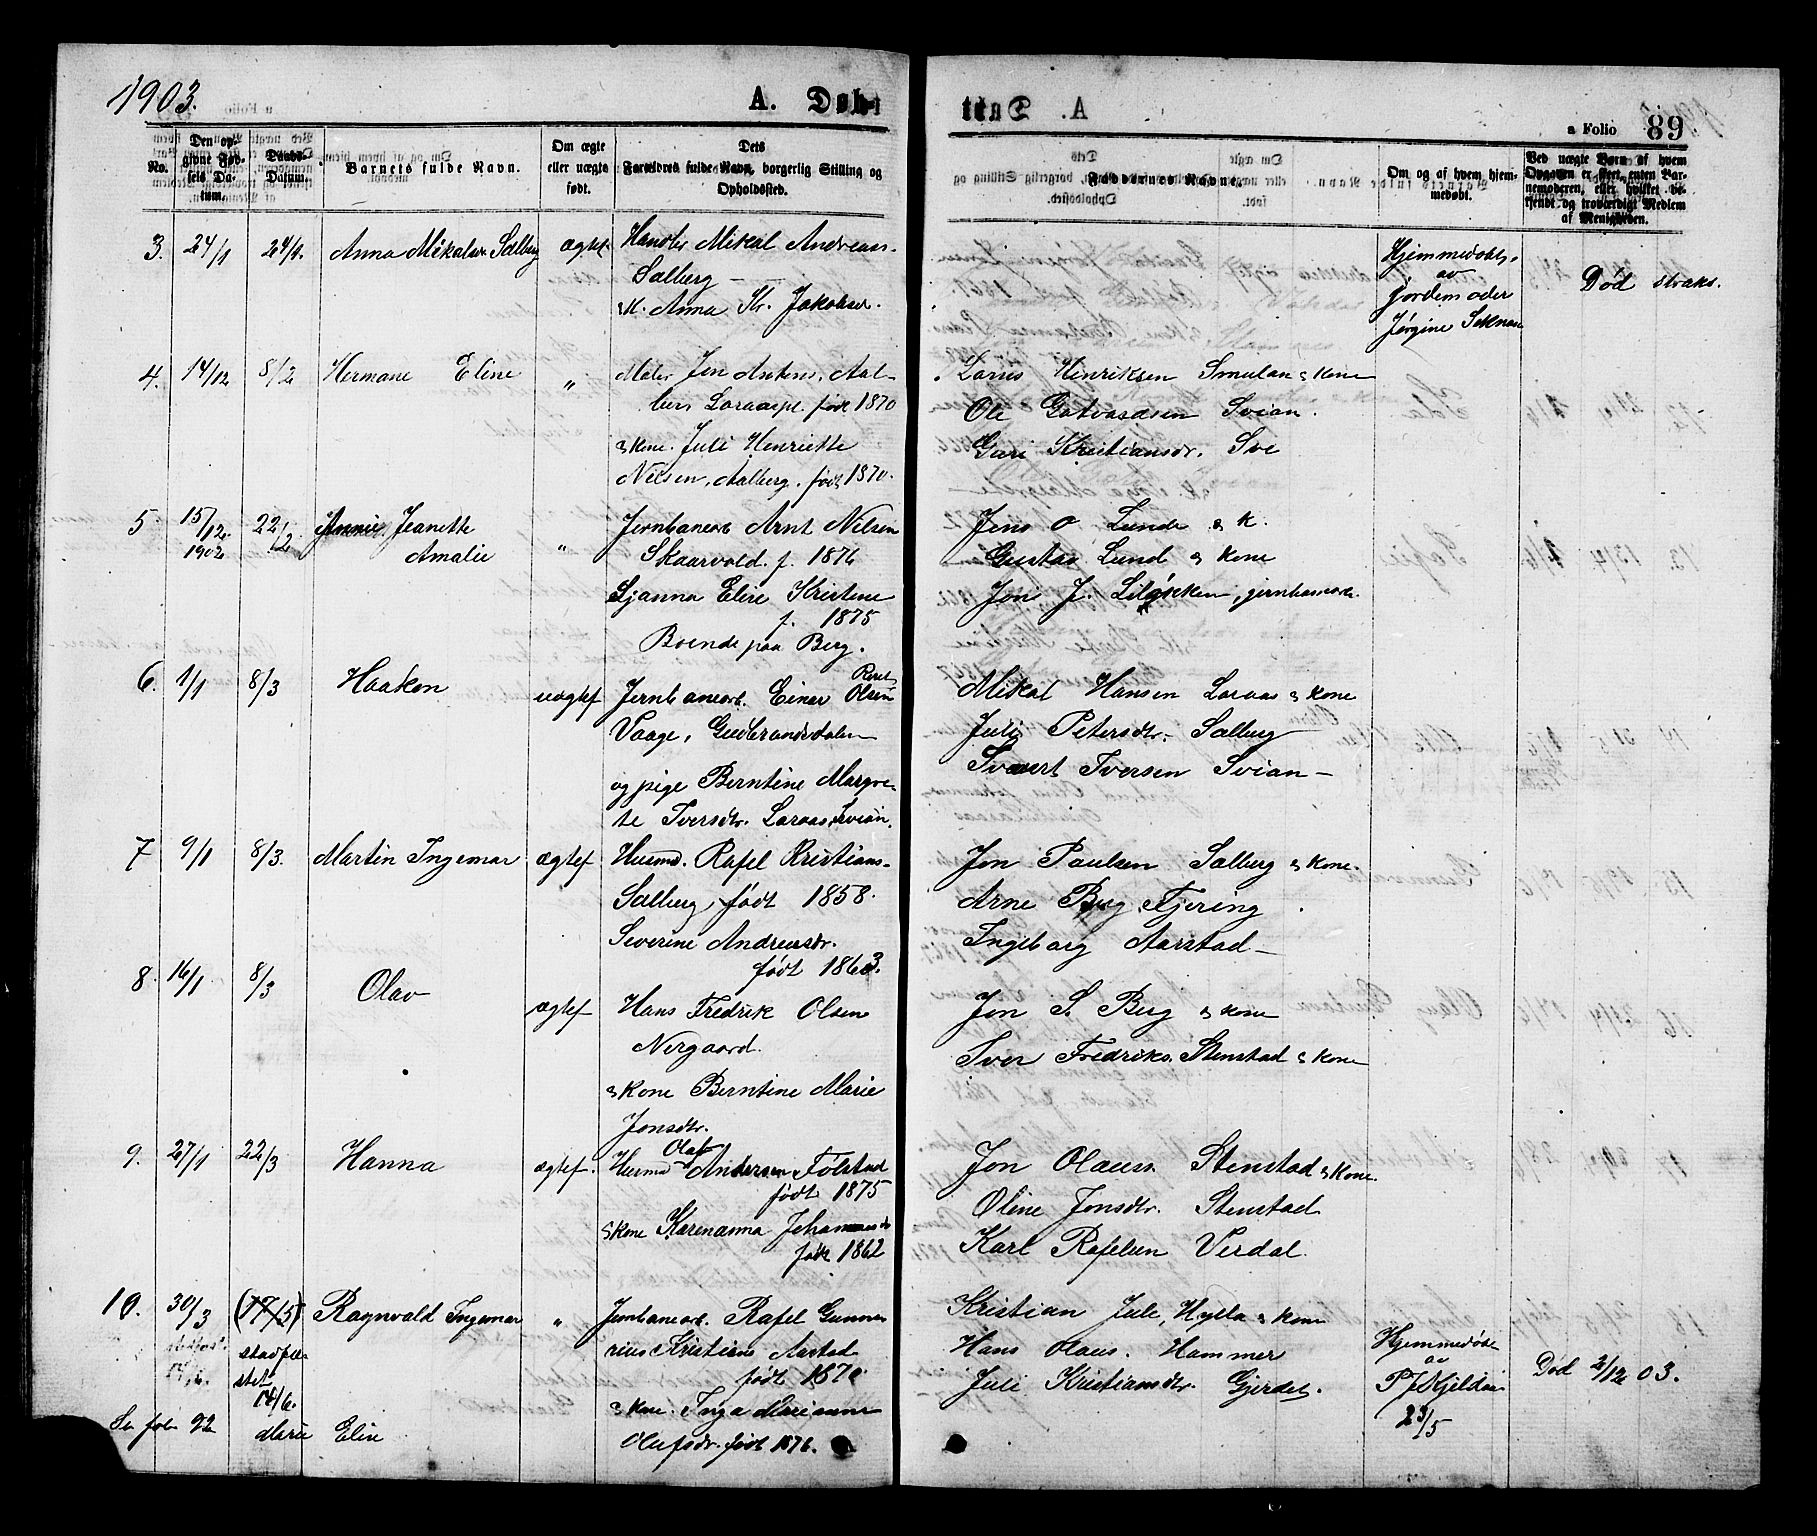 1903.
A. Døb-
A. Døbt
a Folio 89
No.
Den opgivne Fødsels Datum.
Daabs-Datum.
Barnets fulde Navn.
Om ægte eller uægte født.
Dets Forældres fulde Navn, borgerlig Stilling og Opholdssted.
Faddernes Navne.
Om og af hvem hjemmedøbt.
Ved uægte Børn af hvem Opgaven er skeet, enten Barnemoderen, eller hvilket bekjendt og troværdigt Medlem af Menigheden.
3. 24/1 24/1. Anna Mikalsen Salberg ægtef.
Mikal Andreas.
Salberg –
Anna Jakobsen.
Hjemmedøbt,
av
Jordemoder
Jørgine
Død straks.
4. 14/12 8/2 Hermane Eline "
Maler Jon Antons. Aal-
berg Laraaspl. født 1870
& kone. Juli Henriette
Nilsen, Aalberg. født 1870.
Henriksen & kone
Ole Svian.
Guri Kristiansdr. Sve
5. 15/12 1902 22/2 Jeanette
Amalie "
Jernbanearb. Arnt Nilsen
Skaarvold. f. 1876
Elise Kristine
f. 1875
Boende paa Berg.
Jens O Lunde & K.
Gustav Lund & kone
Jon J. Liløkken, jernbanearb.
6. 1/1 8/3 Haakon uægtef
Jernbanearb. Einar Olsen
Vaage, Gudbrandsdalen
og pige Berntine Margre-
te Iversdtr. Laraas, Svian.
Mikal Hansen Laraas & kone
Juli Petersdtr. Salberg
Sivert Iversen Svian –
7 9/1 8/3. Martin Ingemar ægtef
Husmd. Rafel Kristians.
Salberg, født 1858.
Severine Andreasdr.
født 1863.
Jon Paulsen Salberg & kone.
Arne Berg Fjering.
Ingeborg Aarstad –
8. 16/1 8/3 Olav ægtef
Hans Fredrik Olsen
Nergaard.
& kone Berntine Marie
Jonsdtr.
Jon S. Berg & kone
Iver Fredriks. Stenstad & kone
9. 27/1 22/3 Hanna ægtef.
Olaf
Husmd Andersen Folstad
født 1875
& kone Karenanna Johannesdr
født 1862
Jon Olauss. Stenstad & kone.
Oline Jonsdtr. Stenstad
Karl Rafelsen Verdal.
10. 30/3 (17/5) Ragnvald Ingemar "
stadfæ-
stet
14/6.
Jernbanearb. Rafel Gunne-
rius Kristians Aarstad
født 1870.
& kone. Inga Marianne
Olufsdr. født 1876.
Kristian Jule, Hylla & kone
Hans Olaus. Hammer
Juli Kristiansdtr. Gjerdet.
Hjemmedøbt
av
23/5
Død 2/12 03.
Se fol 92 Marie Elise